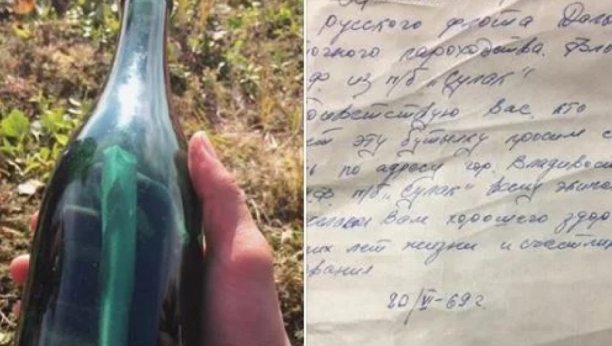 русского флота Даль
точного пароходства. Вла
ф. из п/б „Сулак"
Приветствую Вас, кто
ет эту бутылку просим с
ь по адресу гор. Владивос
ф п/б „Сулак" всему экипа
желаем Вам хорошего здор
их лет жизни и счастлив
вания
20/VI-69 г.